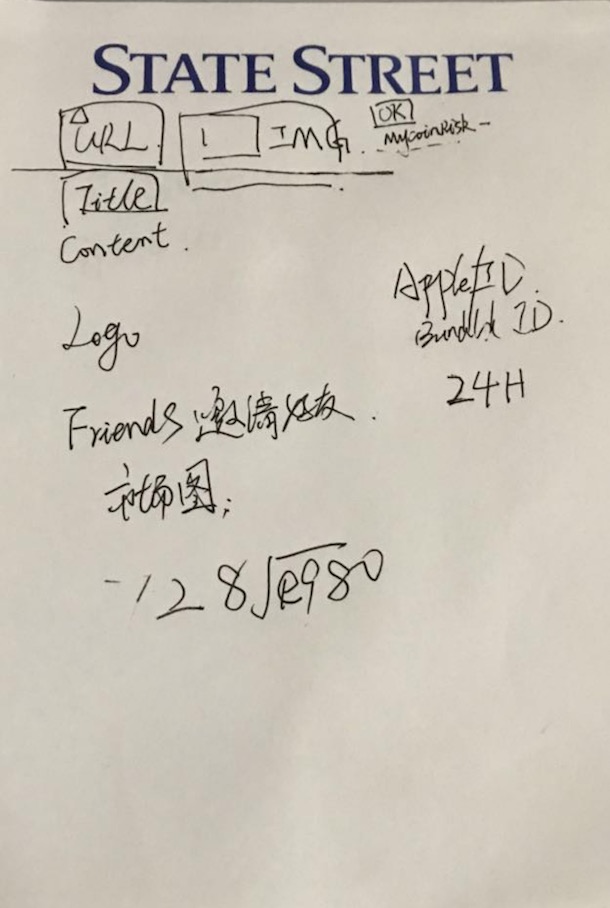 STATE STREET
URL. 1 IMG. OK
MycoinRisk
Title
Content.
Apple ID.
Bundle ID.
Logo
24H
Friends 邀请好友.
市场图;
-128√R980